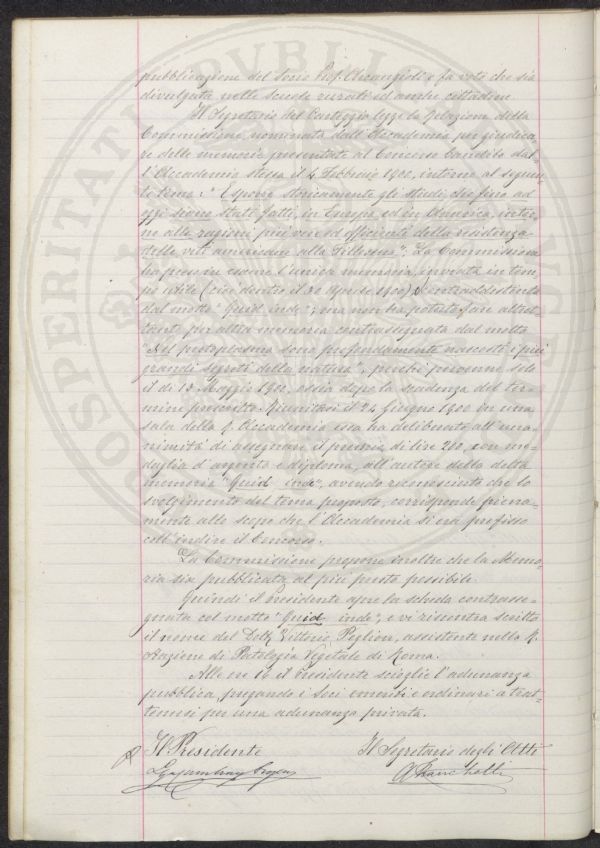 pubblicazione del Socio Prof. Arcangioli e fa voti che sia
divulgata nelle scuole rurali ed anche cittadine.
Il Segretario del Carteggio legge la Relazione della
Commissione nominata dall'Accademia per giudica=
re delle memorie presentate al Concorso bandito dal=
l'Accademia stessa il 4 Febbraio 1900, intorno al seguen=
te tema: "Esporre storicamente gli studi, che fino ad
oggi siano stati fatti, in Europa ed in America, intor=
no alle ragioni più vere ed efficienti della resistenza
delle viti americane alla Fillossera". La Commissione
ha preso in esame l'unica memoria, inviata in tem=
po utile (cioè dentro il 30 Aprile 1900) e contraddistinta
dal motto "Quid inde", ma non ha potuto fare altret=
tanto per altra memoria contrassegnata dal motto
"Nel protoplasma sono profondamente nascosti i più
grandi segreti della natura", perchè pervenne solo
il dì Maggio 1900, ossia dopo la scadenza del ter=
mine prescritto. Riunitasi il 24 Giugno 1900 in una
sala della R. Accademia essa ha deliberato all'una=
nimità di assegnare il premio di lire 200, con me=
daglia d'argento e diploma, all'autore della detta
memoria "Quid inde", avendo riconosciuto che lo
svolgimento del tema proposto, corrisponde piena=
mente allo scopo che l'Accademia si era prefisso
coll'indire il Concorso.
La Commissione propone inoltre che la Memo=
ria sia pubblicata al più presto possibile.
Quindi il Presidente apre la scheda contrasse=
gnata col motto "Quid inde", e vi riscontra scritto
il nome del Dott. Vittorio Peglion, assistente nella R.
Stazione di Patologia Vegetale di Roma.
Alle ore il Presidente scioglie l'adunanza
pubblica, pregando i Soci emeriti e ordinari a trat=
tenersi per una adunanza privata.
Il Presidente Il Segretario degli Atti